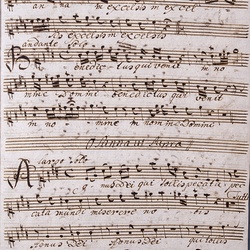 an na in excelsis in excel
sis in excelsis in excelsis
andante Solo
Benedic tus qui venit in no
mine Domini benedictus qui venit
in no mine in nomine Domini
Osanna ut supra
Largo
Agnus Dei qui tollis peccata pec
cata mundi miserere no bis
Agnus Dei Agnus Dei qui tollis